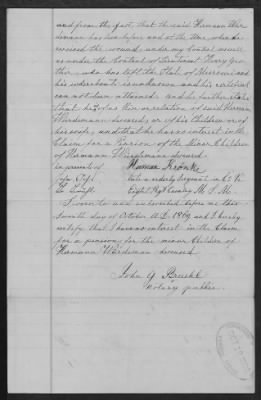 and from the fact, that the said Hermann Wür
demann has been before and at the time when he
received the wound, under my Control as well
as under the Control of Lieutenant Henry Gro
ther, who has left the State of Missouri and
his whereabouts is unknown and his certificate
can not been attained, and he further states
that he is no kin or relation of said Herman
Würdemann deceased, or of his Children or of
his wife, and that he has no interest in the
Claim for a Pension of the Minor Children
of Hermann Würdemann deceased
in presents of Herman
late orderly Sergeant in Co
Eight Regt Cavalry M. S. M.
Sworn to and subscribed before me this
Seventh day of October A.D. 1869 and I hereby
certify that I have no interest in the Claim
for a pension for the minor Children of
Hermann Würdeman deceased
John G.
Notary public